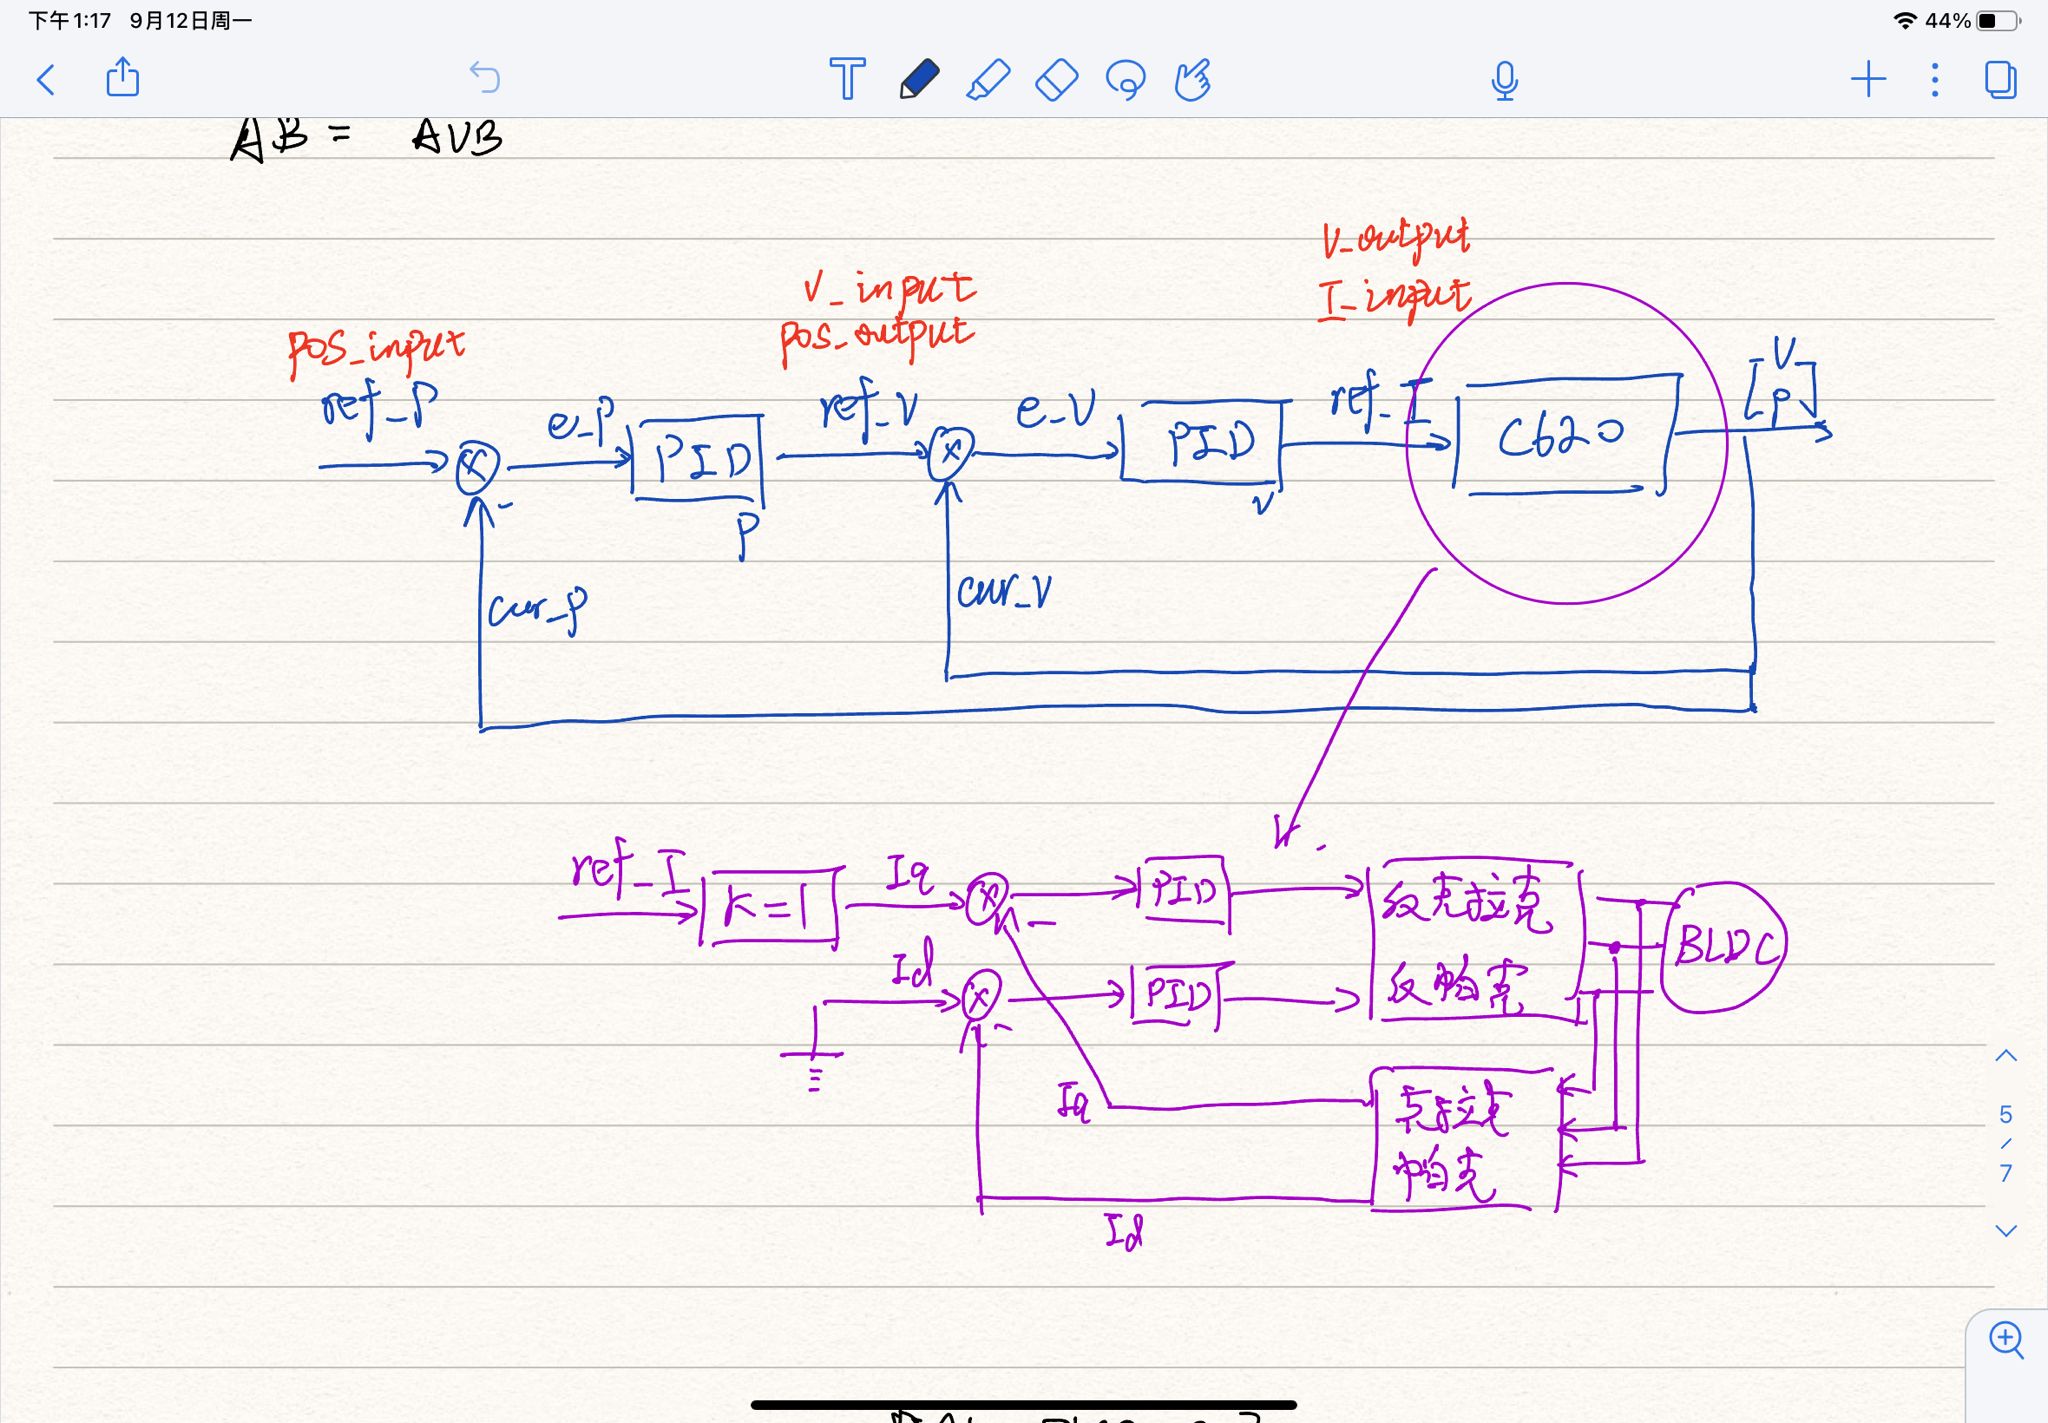 下午1:17 9月12日周一
44%
AB = AVB
V_output
I_input
V_input
pos_output
pos_input
ref_P
e_P
PID
P
ref_V
e_V
PID
V
ref_I
C620
V
P
cur_P
cur_V
ref_I
K=1
Iq
PID
反克拉克
反帕克
BLDC
Id
PID
Iq
克拉克
帕克
Id
5
/
7